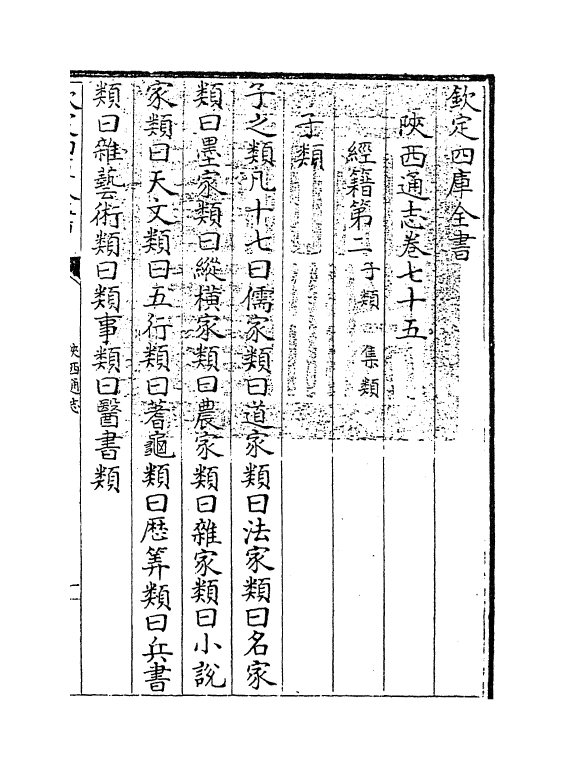 欽定四庫全書
陜西通志卷七十五
經籍第二子類 集類
子類
子之類凡十七曰儒家類曰道家類曰法家類曰名家
類曰墨家類曰縱横家類曰農家類曰雜家類曰小說
家類曰天文類曰五行類曰蓍龜類曰歴筭類曰兵書
類曰雜藝術類曰類事類曰醫書類
陜西通志
一